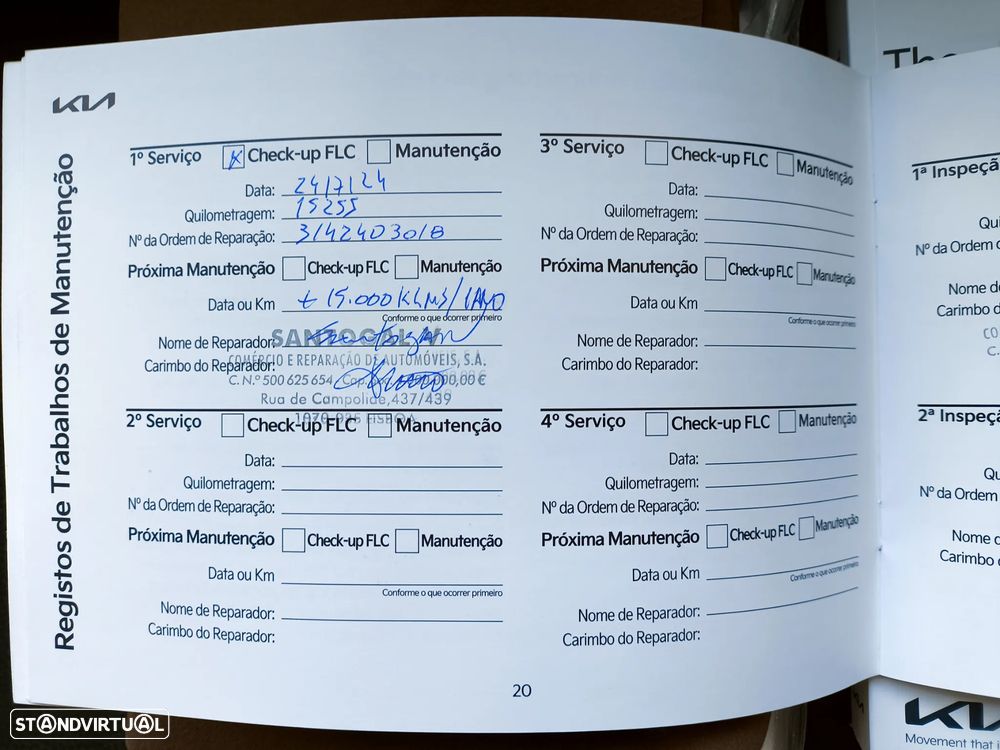 KIA
Registos de Trabalhos de Manutenção
1º Serviço Check-up FLC Manutenção
Data: 24/7/24
Quilometragem: 15255
Nº da Ordem de Reparação: 314240301B
Próxima Manutenção Check-up FLC Manutenção
Data ou Km + 15.000 KLMS/1ANO
Conforme o que ocorrer primeiro
Nome de Reparador:
Carimbo do Reparador:
SANTOGAL V
COMÉRCIO E REPARAÇÃO DE AUTOMÓVEIS, S.A.
C. N.º 500 625 654 Cap. 000,00 €
Rua de Campolide, 437/439
LISBOA
2º Serviço Check-up FLC Manutenção
Data:
Quilometragem:
Nº da Ordem de Reparação:
Próxima Manutenção Check-up FLC Manutenção
Data ou Km
Conforme o que ocorrer primeiro
Nome de Reparador:
Carimbo do Reparador:
3º Serviço Check-up FLC Manutenção
Data:
Quilometragem:
Nº da Ordem de Reparação:
Próxima Manutenção Check-up FLC Manutenção
Data ou Km
Conforme o que ocorrer primeiro
Nome de Reparador:
Carimbo do Reparador:
4º Serviço Check-up FLC Manutenção
Data:
Quilometragem:
Nº da Ordem de Reparação:
Próxima Manutenção Check-up FLC Manutenção
Data ou Km
Conforme o que ocorrer primeiro
Nome de Reparador:
Carimbo do Reparador:
20
1ª Inspeçã
Qu
Nº da Ordem d
Nome d
Carimbo d
2ª Inspeçã
Qu
Nº da Ordem
Nome d
Carimbo d
KIA
Movement that i
STANDVIRTUAL